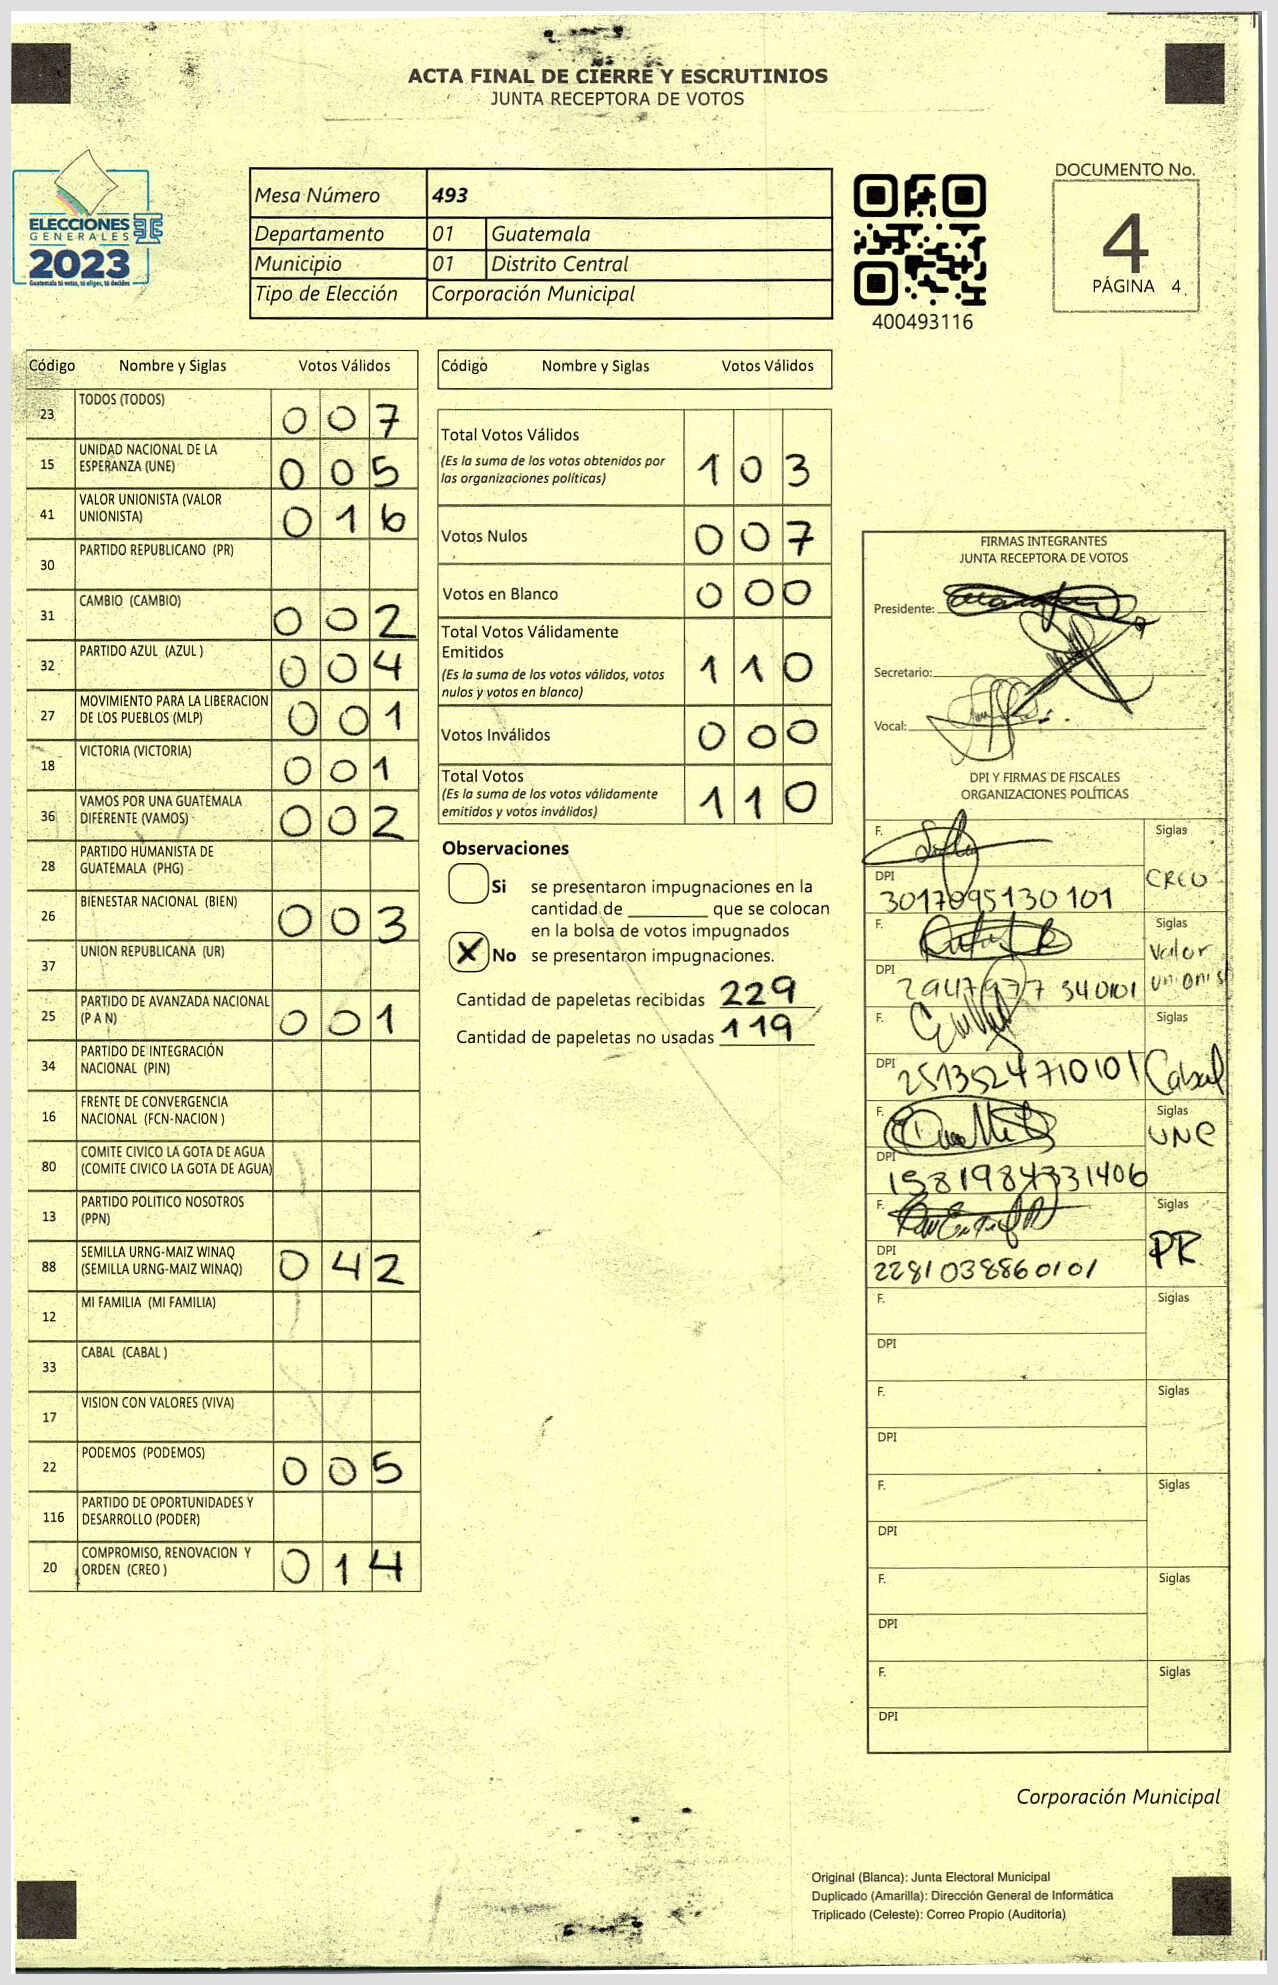 ACTA FINAL DE CIERRE Y ESCRUTINIOS
JUNTA RECEPTORA DE VOTOS
ELECCIONES
GENERALES
2023
Guatemala tú votas, tú eliges, tú decides
Mesa Número 493
Departamento 01 Guatemala
Municipio 01 Distrito Central
Tipo de Elección Corporación Municipal
400493116
DOCUMENTO No.
4
PÁGINA 4
Código Nombre y Siglas Votos Válidos
23 TODOS (TODOS) 0 0 7
15 UNIDAD NACIONAL DE LA
ESPERANZA (UNE) 0 0 5
41 VALOR UNIONISTA (VALOR
UNIONISTA) 0 1 6
30 PARTIDO REPUBLICANO (PR)
31 CAMBIO (CAMBIO) 0 0 2
32 PARTIDO AZUL (AZUL ) 0 0 4
27 MOVIMIENTO PARA LA LIBERACION
DE LOS PUEBLOS (MLP) 0 0 1
18 VICTORIA (VICTORIA) 0 0 1
36 VAMOS POR UNA GUATEMALA
DIFERENTE (VAMOS) 0 0 2
28 PARTIDO HUMANISTA DE
GUATEMALA (PHG)
26 BIENESTAR NACIONAL (BIEN) 0 0 3
37 UNION REPUBLICANA (UR)
25 PARTIDO DE AVANZADA NACIONAL
(P A N) 0 0 1
34 PARTIDO DE INTEGRACIÓN
NACIONAL (PIN)
16 FRENTE DE CONVERGENCIA
NACIONAL (FCN-NACION )
80 COMITE CIVICO LA GOTA DE AGUA
(COMITE CIVICO LA GOTA DE AGUA)
13 PARTIDO POLITICO NOSOTROS
(PPN)
88 SEMILLA URNG-MAIZ WINAQ
(SEMILLA URNG-MAIZ WINAQ) 0 4 2
12 MI FAMILIA (MI FAMILIA)
33 CABAL (CABAL )
17 VISION CON VALORES (VIVA)
22 PODEMOS (PODEMOS) 0 0 5
116 PARTIDO DE OPORTUNIDADES Y
DESARROLLO (PODER)
20 COMPROMISO, RENOVACION Y
ORDEN (CREO ) 0 1 4
Código Nombre y Siglas Votos Válidos
Total Votos Válidos
(Es la suma de los votos obtenidos por
las organizaciones políticas) 1 0 3
Votos Nulos 0 0 7
Votos en Blanco 0 0 0
Total Votos Válidamente
Emitidos
(Es la suma de los votos válidos, votos
nulos y votos en blanco) 1 1 0
Votos Inválidos 0 0 0
Total Votos
(Es la suma de los votos válidamente
emitidos y votos inválidos) 1 1 0
Observaciones
Si se presentaron impugnaciones en la
cantidad de ________ que se colocan
en la bolsa de votos impugnados
X No se presentaron impugnaciones.
Cantidad de papeletas recibidas 229
Cantidad de papeletas no usadas 119
FIRMAS INTEGRANTES
JUNTA RECEPTORA DE VOTOS
Presidente:
Secretario:
Vocal:
DPI Y FIRMAS DE FISCALES
ORGANIZACIONES POLÍTICAS
F. Siglas
DPI CREO
3017095130101
F. Siglas
Valor
DPI Unionis
2947977 340101
F. Siglas
DPI 2513524710101 Cabal
F. Siglas
UNE
DPI
1581984331406
F. Siglas
DPI PR
2281038860101
F. Siglas
DPI
F. Siglas
DPI
F. Siglas
DPI
F. Siglas
DPI
F. Siglas
DPI
Corporación Municipal
Original (Blanca): Junta Electoral Municipal
Duplicado (Amarilla): Dirección General de Informática
Triplicado (Celeste): Correo Propio (Auditoría)